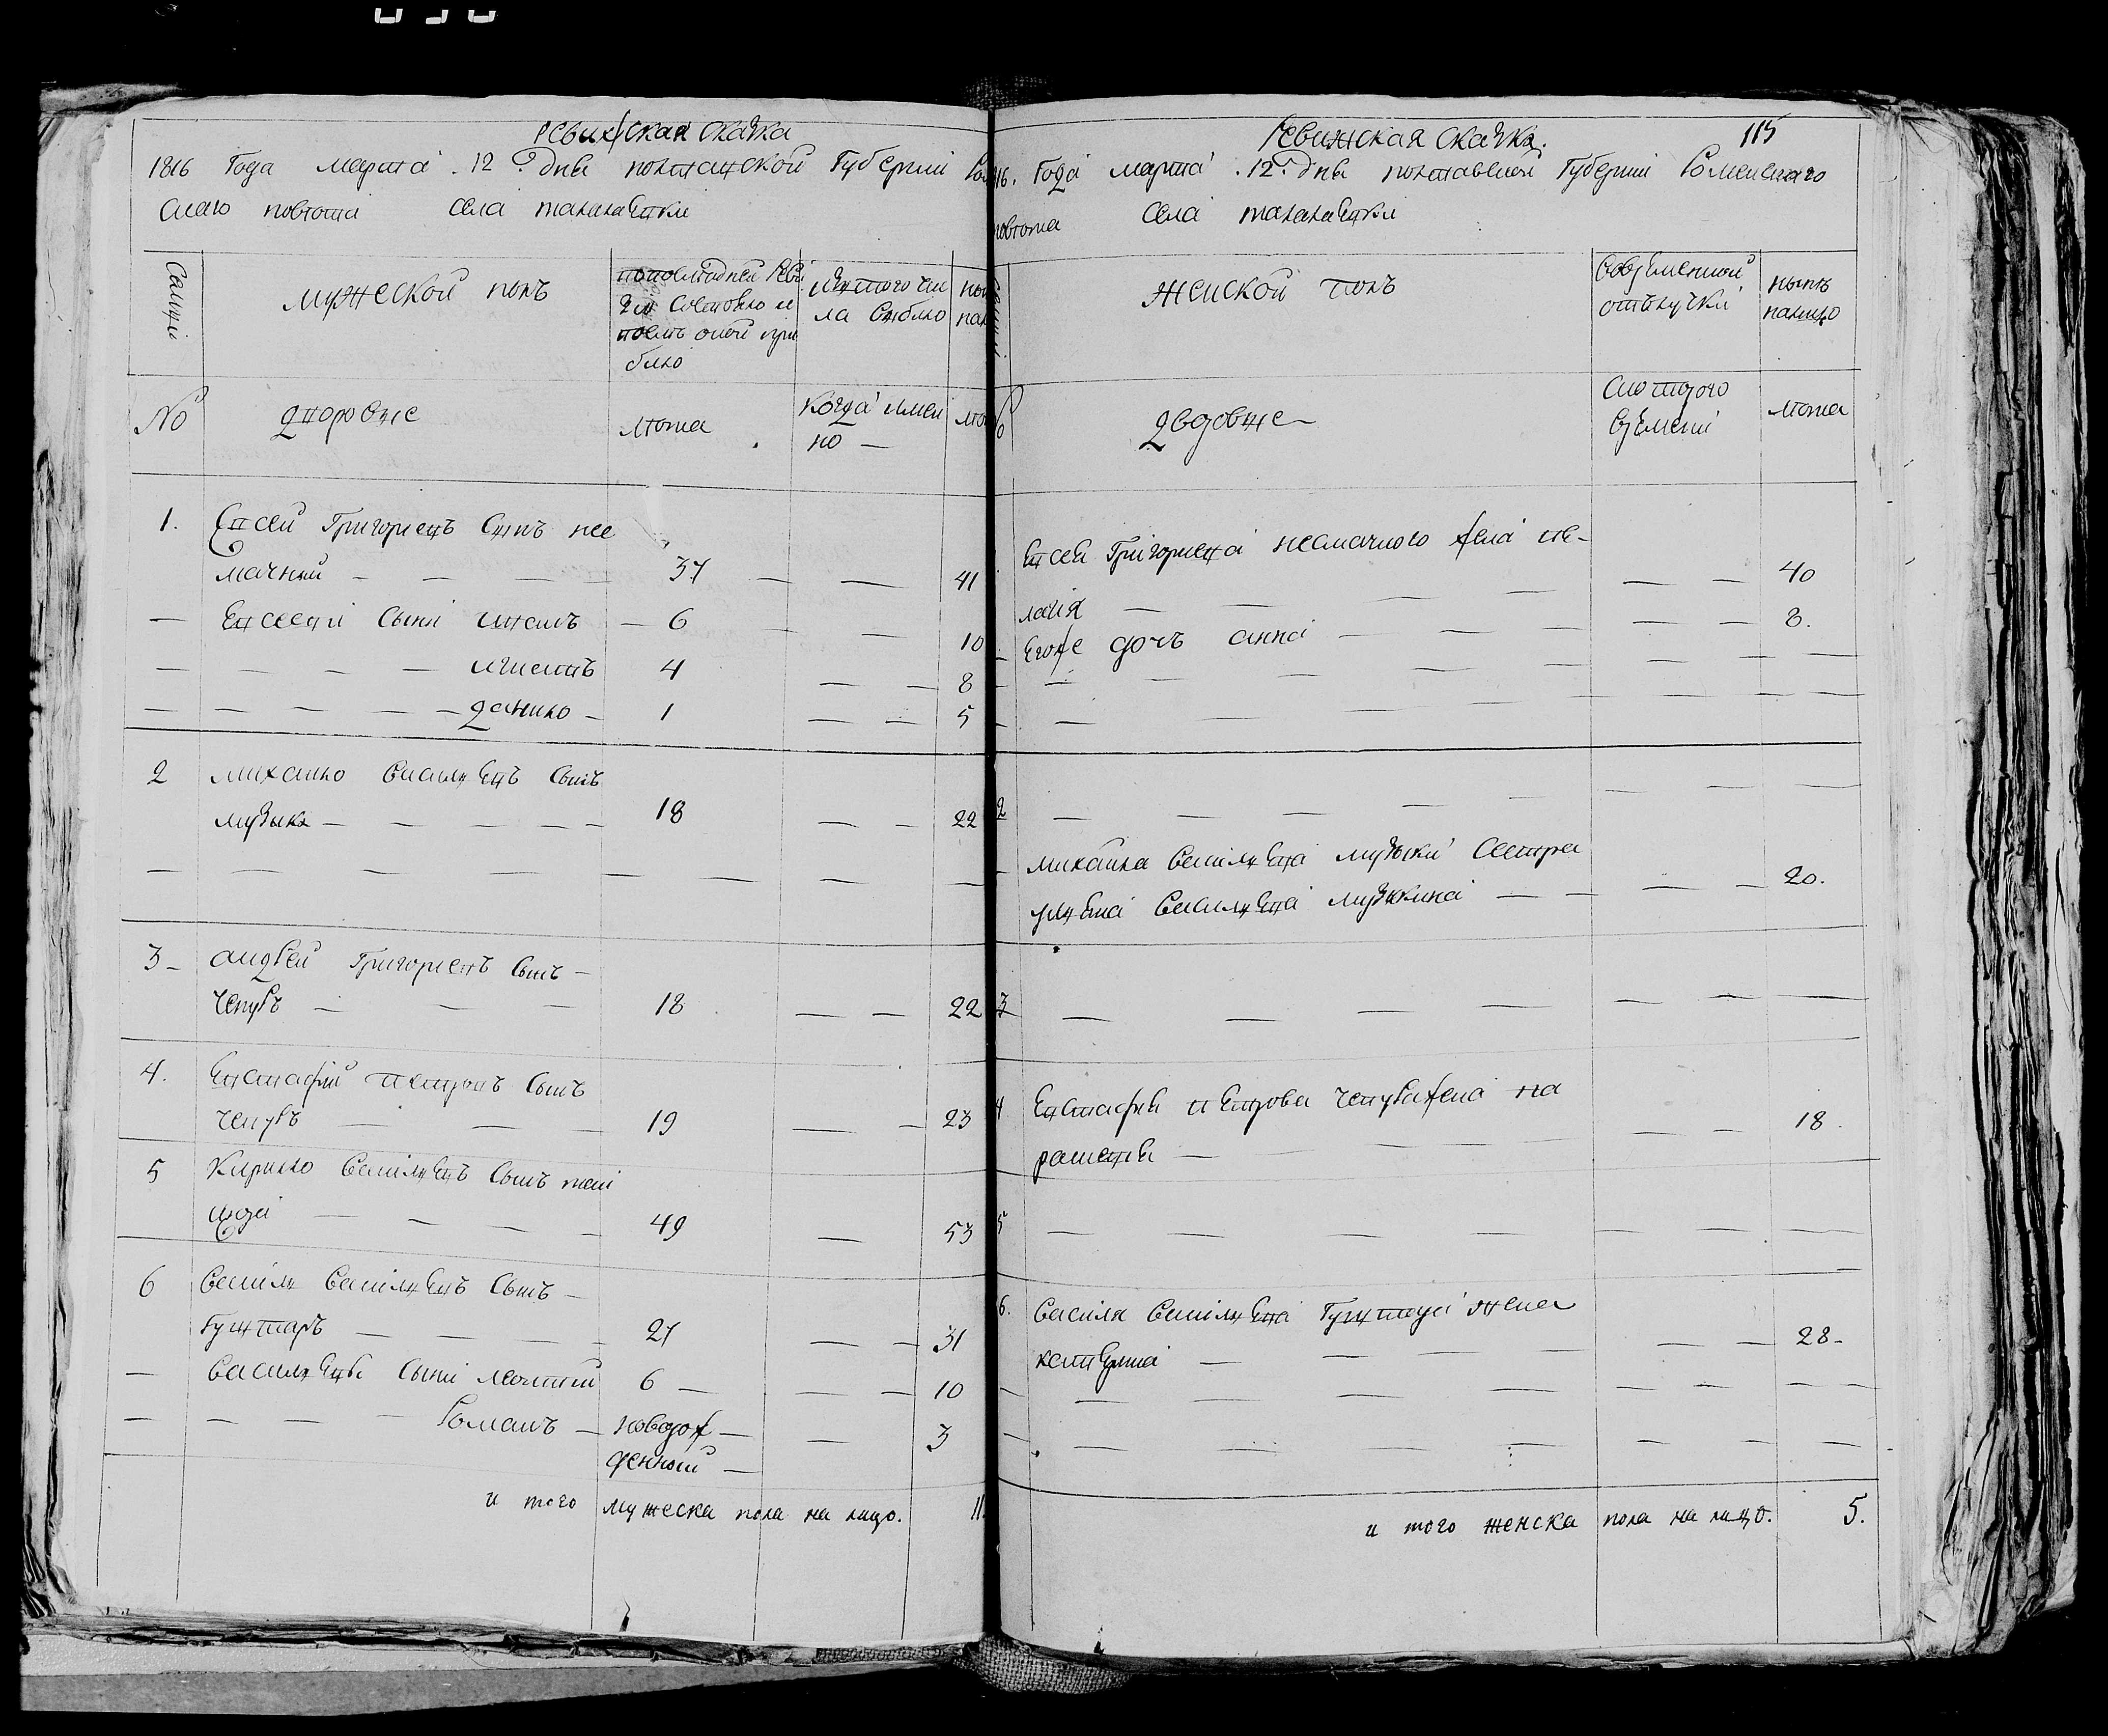 Ревижская сказка
1816 Года марта 12 дня полтавской Губернии Ро
скаго повтота села талалаевки
мужеской полъ
по последней Реви
зии состояло и
после оной при
было
изтого чи
ла выбыло
№
дворовые
лета
Когда имен
но —
1. Евсей Григориевъ сынъ нес
мачный — 37 — — 41
— Евсеевы сыни — 6 — 10
— — — — 4 — — 8
— — — — данило — 1 — — 5
2 михаило василиевъ сынъ
музыка — 18 — — 22
3 — андрей Григориевъ сынъ —
чепуръ — 18 — — 22
4. Евстафий петровъ сынъ
чепуръ — 19 — — 23
5 Кирило василиевъ сынъ
49 — 53
6 василь василиевъ сынъ —
27 — — 31
— василиевы сыни леонтий 6 — — — 10
— — — — Романъ — новорож — — 3
денный —
и того мужеска пола на лицо. 11.
Ревижская сказка. 115
16. Года марта 12 дня полтавской Губернии Роменскаго
повтота села талалаевки
женской полъ
Вовременной
отлучки
ныне
налицо
дворовые
с которого
времени
лета
Евсея Григориева несмачного жена пе-
лагия — — — 40
Егоже дочъ анна — — — 8.
2 — — —
михаила василиева музыки сестра
василиева музыкина — — 20.
3 — — —
4 Евстафия петрова чепура жена па
раскевия — — — 18.
5 — — —
6. василя василиева жена
катерина — — — 28 —
и того женска пола на лицо. 5.